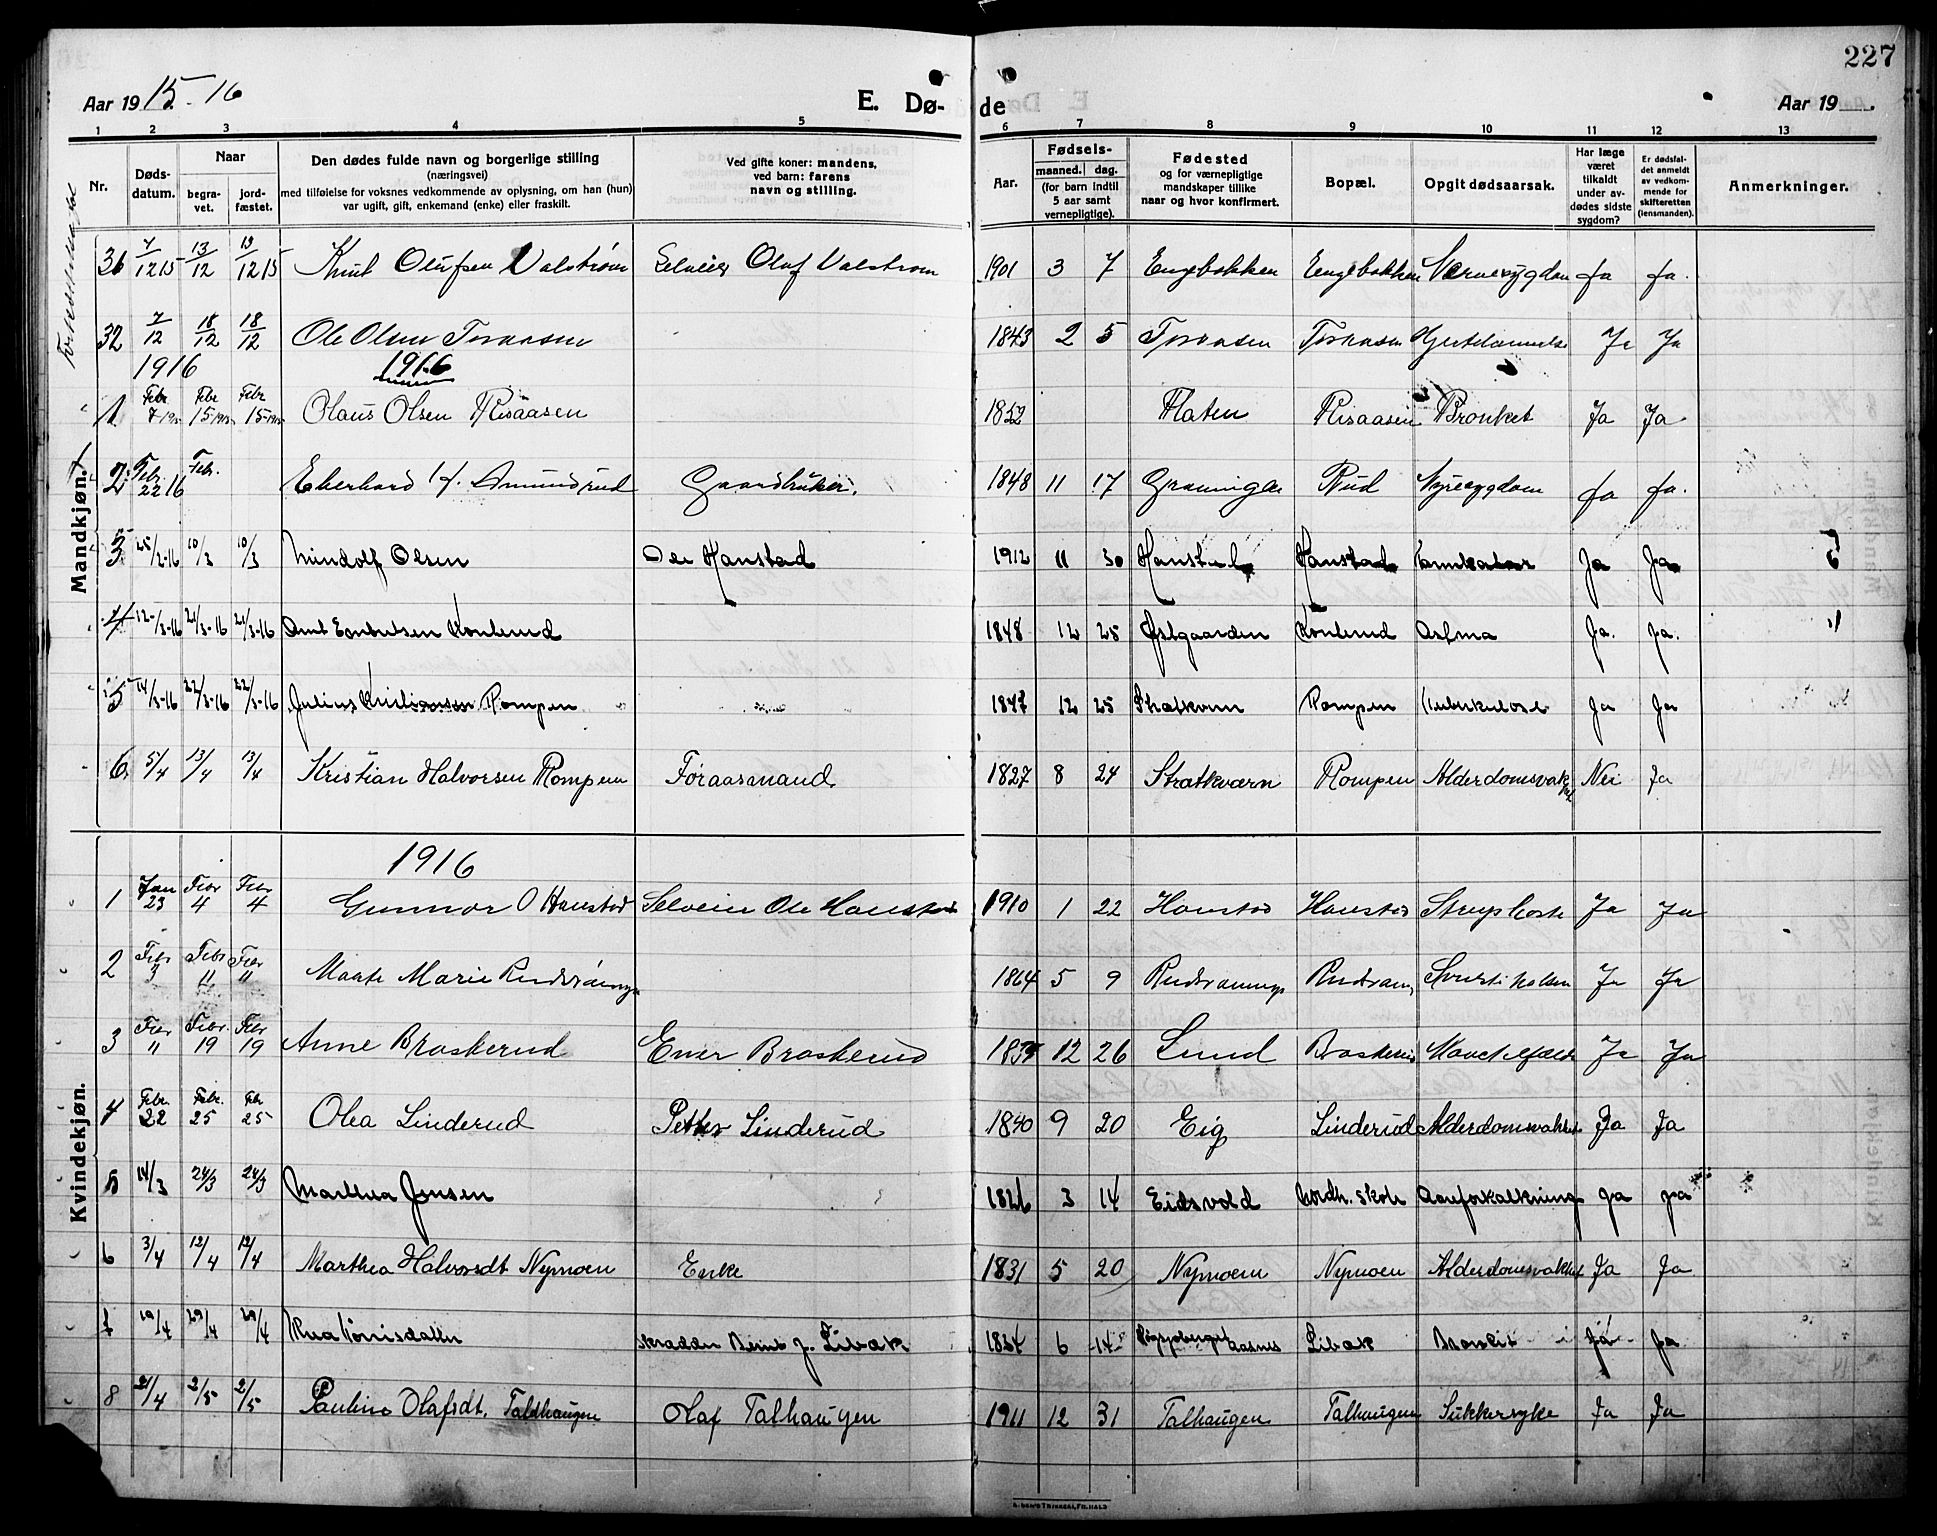 227
Aar 1915-16 E. Dø- de Aar 19
1 2 3 4 5 6 7 8 9 10 11 12 13
Nr. Døds-datum. Naar begra-vet. jord-fæstet. Den dødes fulde navn og borgerlige stilling (næringsvei) med tilføielse for voksnes vedkommende av oplysning, om han (hun) var ugift, gift, enkemand (enke) eller fraskilt. Ved gifte koner: mandens, ved barn: farens navn og stilling. Aar. Fødsels- maaned. dag. (for barn indtil 5 aar samt vernepligtige). Fødested og for værnepligtige mandskaper tillike naar og hvor konfirmert. Bopæl. Opgit dødsaarsak. Har læge været tilkaldt under av-dødes sidste sygdom? Er dødsfal-det anmeldt av vedkom-mende for skifteretten (lensmanden). Anmerkninger.
Mandkjøn.
36 7/12 15 13/12 13/12 15 Knut Olufsen Valstrøm Selveier Olaf Valstrøm 1901 3 7 Engebakken Engebakken Nervesygdom Ja Ja.
32 7/12 18/12 18/12 Ole Olsen Toraasen 1843 2 5 Toraasen Toraasen Ja Ja
1916 1916
1 Febr 7 Febr 15 Febr 15 Olaus Olsen Risaasen 1852 Flaten Risaasen Bronket Ja Ja
2 Febr. 22 16 Febr. Eberhard H. Amundrud Gaardbruker. 1848 11 17 Rud Nyresygdom Ja Ja.
3 25/2-16 10/3 10/3 Mindolf Olsen Ole Hanstad 1912 11 30 Hanstad Hanstad Ja Ja
4 12/3-16 21/3-16 21/3-16 1848 12 25 Østgaarden Konterud Astma Ja. Ja.
5 14/3-16 22/3-16 22/3-16 Julius Kristiansen Rompen 1847 12 25 Stratkvern Rompen Tuberkulose Ja Ja
6 5/4 13/4 13/4 Kristian Halvorsen Rompen Føraasmand 1827 8 24 Stratkværn Rompen Alderdomsvakhet Nei Ja
Kvindekjøn.
1916
1 Jan 23 Febr 4 Febr 4 Gunnor O Hanstad Selveier Ole Hanstad 1910 1 22 Hanstad Hanstad Struphoste Ja Ja
2 Febr 3 Febr 11 Febr 11 Marte Marie 1864 5 9 Ja Ja
3 Febr 11 Febr. 19 Febr 19 Anne Braskerud Ener Braskerud 12 26 Lund Braskerud Ja Ja
4 Febr. 22 Febr. 25 Febr 25 Olea Linderud Petter Linderud 1840 9 20 Eig Linderud Alderdomsvakhet Ja Ja
5 14/3 24/3 24/3 Marthea Jensen 1826 3 14 Eidsvold Nordh. skole Aareforkalkning Ja Ja
6 3/4 12/4 12/4 Marthea Halvorsdt Nymoen Enke 1831 5 20 Nymoen Nymoen Alderdomsvakhet Ja Ja
7 19/4 29/4 29/4 Skradder Bernt J. Libak 6 14 Aasnes Libak Bronkit Ja Ja
8 21/4 2/5 2/5 Pauline Olafsdt. Taldhaugen Olaf Talhaugen 1911 12 31 Talhaugen Talhaugen Sukkersyke Ja Ja